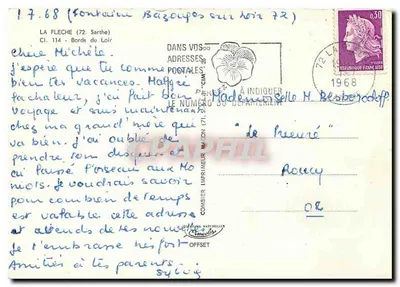 1.7.68 (Fontaine Bazouges sur Loir 72)
LA FLECHE (72. Sarthe)
CI. 114 - Bords du Loir
Chère Michèle.
j'espère que tu commences
bien tes vacances. Malgré
la chaleur, j'ai fait bon
voyage et suis maintenant
chez ma grand'mère qui
va bien. j'ai oublié de
prendre ton disque et
ai laissé l'oiseau aux
mots. Je voudrais savoir
pour combien de temps
est valable cette adresse
et attends de tes nouvelles
Je t'embrasse très fort
Amitiés à tes parents.
Sylvie
DANS VOS
ADRESSES
POSTALES
PENSEZ A INDIQUER
LE NUMERO DU DEPARTEMENT
72 LA
1968
0,30
REPUBLIQUE FRANCAISE
COMBIER IMPRIMEUR MACON
"CIM"
Mademoiselle M.
"Le Prieuré"
Roucy
02
OFFSET